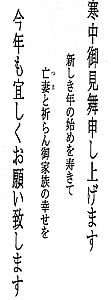 寒中御見舞申し上げます
新しき年の始めを寿きて
亡妻と祈らん御家族の幸せを
今年も宜しくお願い致します